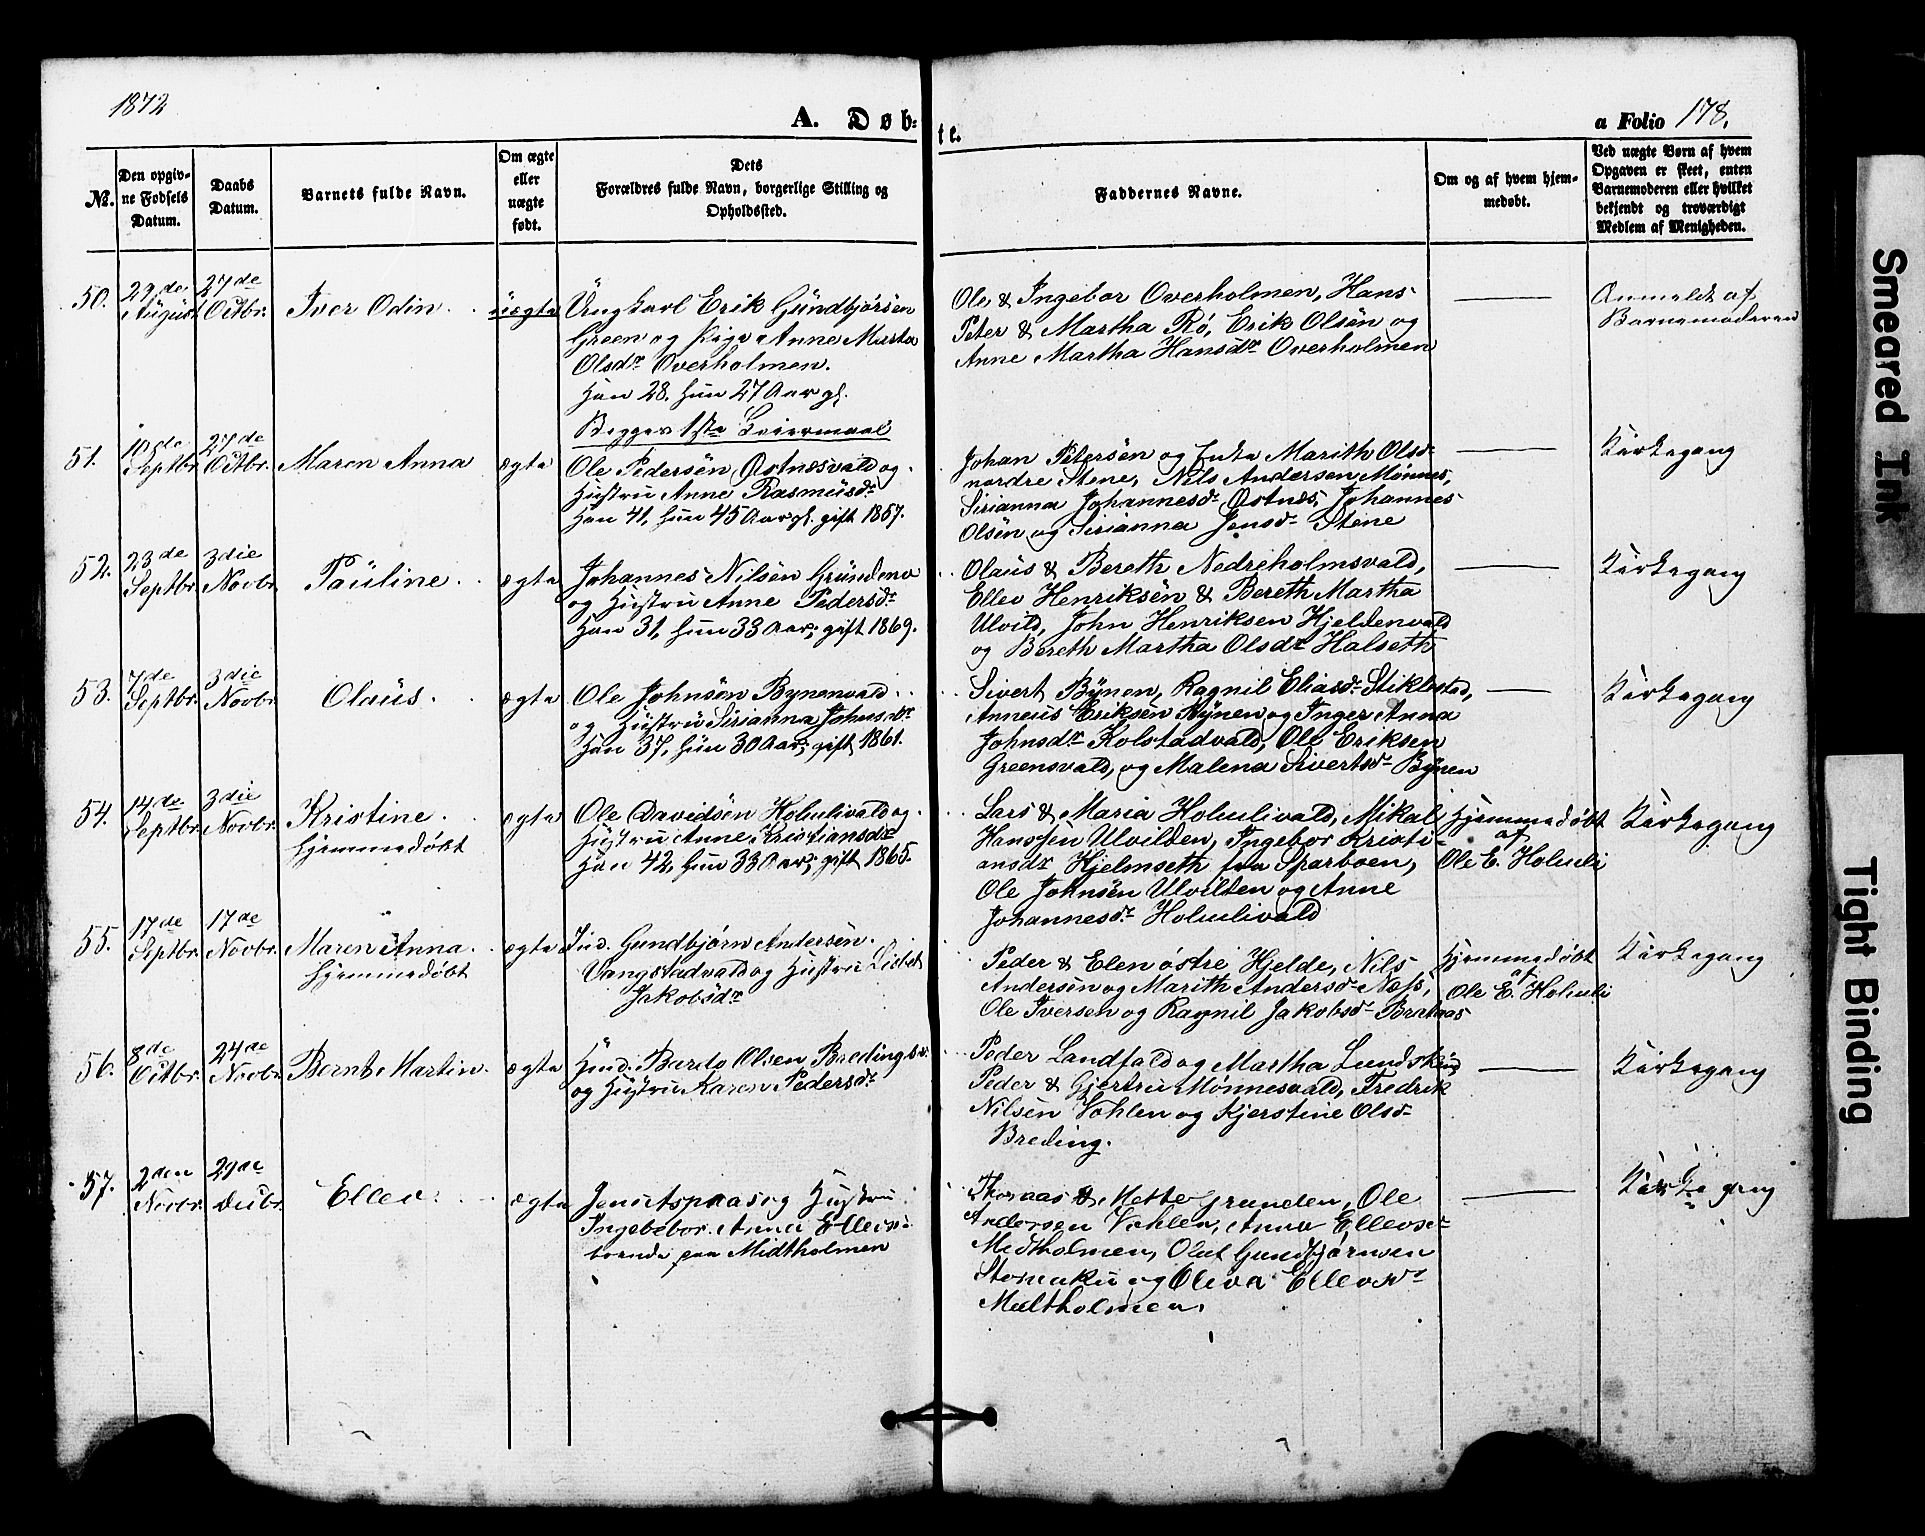 1872
A. Døb-
te.
a Folio 178.
№.
Den opgiv-
ne Fødsels
Datum.
Daabs
Datum.
Barnets fulde Navn.
Om ægte
eller
uægte
født.
Dets
Forældres fulde Navn, borgerlige Stilling og
Opholdssted.
Faddernes Navne.
Om og af hvem hjem-
medøbt.
Ved uægte Børn af hvem
Opgaven er skeet, enten
Barnemoderen eller hvilket
bekjendt og troværdigt
Medlem af Menigheden.
50.
29de
August
27de
Octbr.
Iver Odin
uægte
Ungkarl Erik Gundbjørsen
Green og Pige Anne Marta
Olsdr Overholmen.
Han 28. hun 27 Aar gl.
Begges 1ste Leiermaal
Ole & Ingebor Overholmen, Hans
Peter & Martha Rø, Erik Olsen og
Anne Martha Hansdr Overholmen
Anmeldt af
Barnemoderen
51.
10de
Septbr.
27de
Octbr.
Maren Anna
ægte
Ole Pedersen Østnesvald og
Hustru Anne Rasmusdr
Han 41, hun 45 Aar gl. gift 1857.
Johan Petersen og Enke Marith Olsd
nordre Stene, Nils Andersen Mønnes,
Sirianna Johannesdr Østnes, Johannes
Olsen og Sirianna Jensdr Stene
Kirkegang
52.
23de
Septbr.
3die
Novbr.
Pauline
ægte
Johannes Nilsen Grundena
og Hustru Anne Pedersdr
Han 31, hun 33 Aar; gift 1869.
Olaus & Bereth Nedreholmsvald,
Ellev Henriksen & Bereth Martha
Ulvild, John Henriksen Hjeldenvald
og Bereth Martha Olsdr Halseth
Kirkegang
53.
7de
Septbr.
3die
Novbr.
Olaus.
ægte
Ole Johnsen Bynenvald
og Hustru Sirianna Johnsdr
Han 37, hun 30 Aar; gift 1861.
Sivert Bynen, Ragnil Eliasdr Stiklestad,
Anneus Eriksen Bynen og Inger Anna
Johnsdr Kolstadvald, Ole Eriksen
Greensvald, og Malena Sivertsdr Bynen
Kirkegang
54.
14de
Septbr.
3die
Novbr.
Kristine.
hjemmedøbt
ægte
Ole Davidsen Holulivald og
Hustru Anne Kristiansdr
Han 42, hun 33 Aar; gift 1865.
Lars & Maria Holulivald, Mikal
Hanssen Ulvilden, Ingebor Kristi-
ansdr Hjelmseth fra Sparboen,
Ole Johnsen Ulvilden og Anne
Johannesdr Holulivald
Hjemmedøbt
af
Ole E. Holuli
Kirkegang
55.
17de
Septbr.
17de
Novbr.
Maren Anna.
hjemmedøbt
ægte
Ind. Gundbjørn Andersen.
Vangstadvald og Hustru Lisbet
Jakobsdr
Peder & Elen østre Hjelde, Nils
Andersen og Marith Andersdr Næss,
Ole Iversen og Ragnil Jakobsdr
Hjemmedøbt
af
Ole E. Holuli
Kirkegang
56.
8de
Octbr.
24de
Novbr.
Bernt Martin.
ægte
Bardo Olsen Breding
og Hustru Karen Pedersdr
Peder Landfald og Martha
Peder & Gjertru Mønnesvald, Fredrik
Nilsen Vohlen og Kjerstine Olsdr
Breding.
Kirkegang
57.
2den
Novbr.
29de
Decbr.
Ellev.
ægte
og Hustru
Anna Ellevs-
boende paa Midtholmen
Thomas & Mette Grunden, Ole
Andersen Vohlen, Anna Ellevsdr
Midtholmen, Olut Gundbjørnsen
og Oleva Ellevsdr
Midtholmen.
Kirkegang
Smeared Ink
Tight Binding